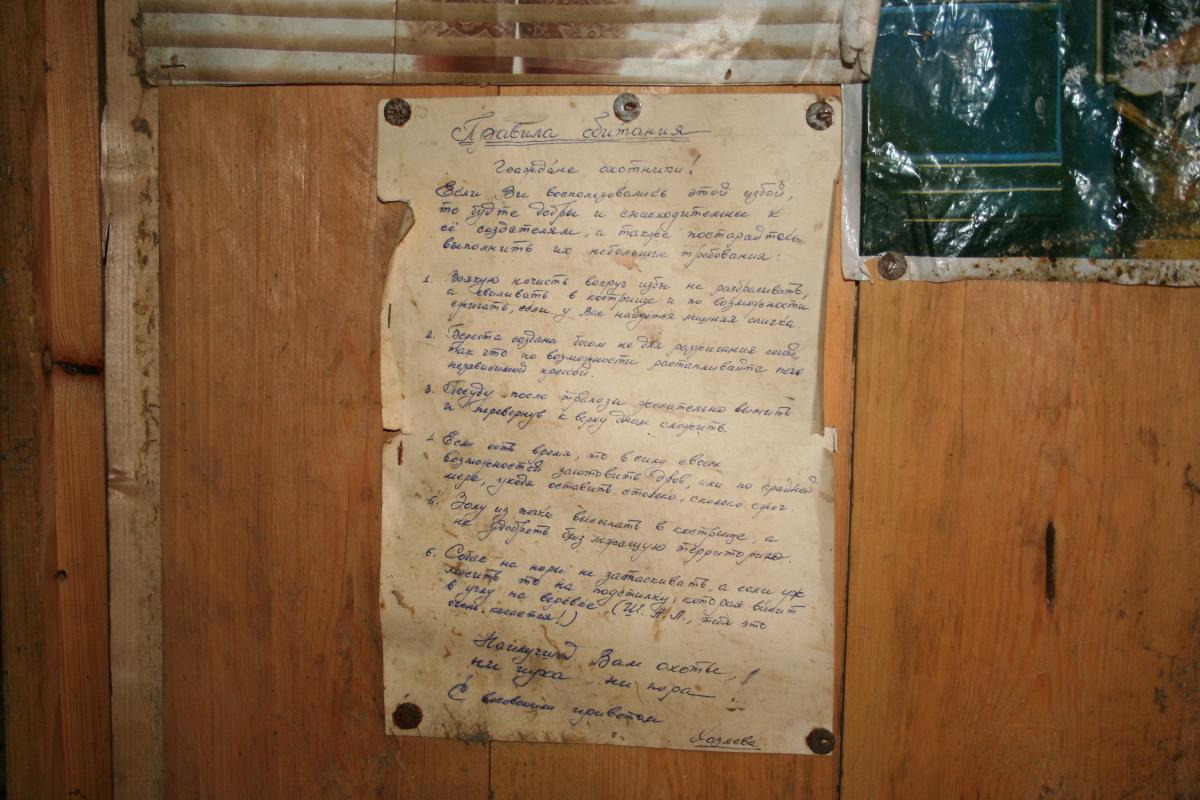 Правила обитания
Граждане охотники!
Если Вы воспользовались этой избой,
то будте добры и снисходительные к
её создателям, а также постарайтесь
выполнить их небольшие требования:
1. Всякую нечисть вокруг избы не разбрасывать,
а сваливать в кострище и по возможности
сжигать, если у Вас найдется лишняя спичка
2. Береста создана богом не для разжигания
так что по возможности растапливайте печь
независимой
3. Посуду после трапезы желательно вымыть
и перевернув к верху дном сложить.
4. Если есть время, то в силу своих
возможностей заготовить дров, или по крайней
мере, уходя оставить столько, сколько сжег.
5. Золу из печки высыпать в кострище, а
не удобрять близ лежащую территорию.
6. Собак на нары не затаскивать, а если уж
то на подстилку, которая висит
в углу на верёвке (Ш. А.Л., тебя это
касается!)
Наилучшей Вам охоты,
ни пуха ни пера!
С приветом
Хозяева